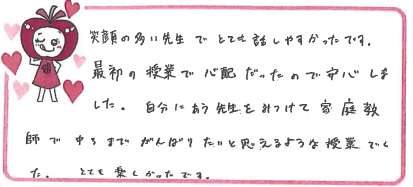 笑顔の多い先生でとても話しやすかったです。
最初の授業で心配だったので安心しま
した。自分にあう先生をみつけて家庭教
師で中3までがんばりたいと思えるような授業でし
た。とても楽しかったです。